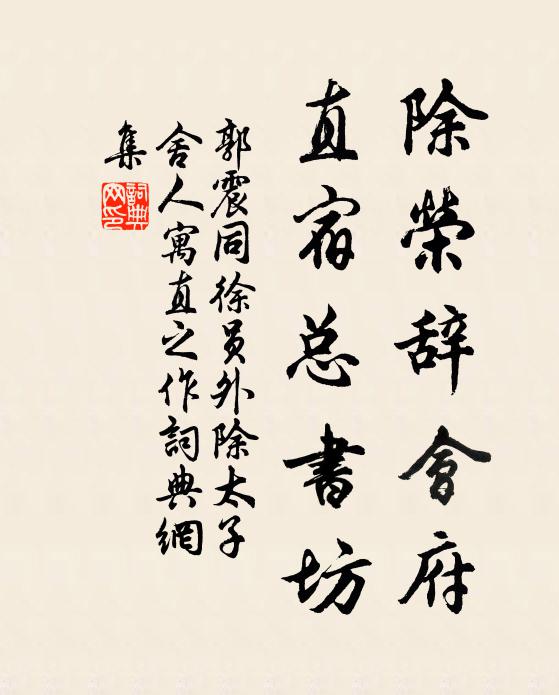 除榮辞會府
直宿总書坊
郭震同徐員外除太子
舍人寓直之作詞典網
集
詞典网印